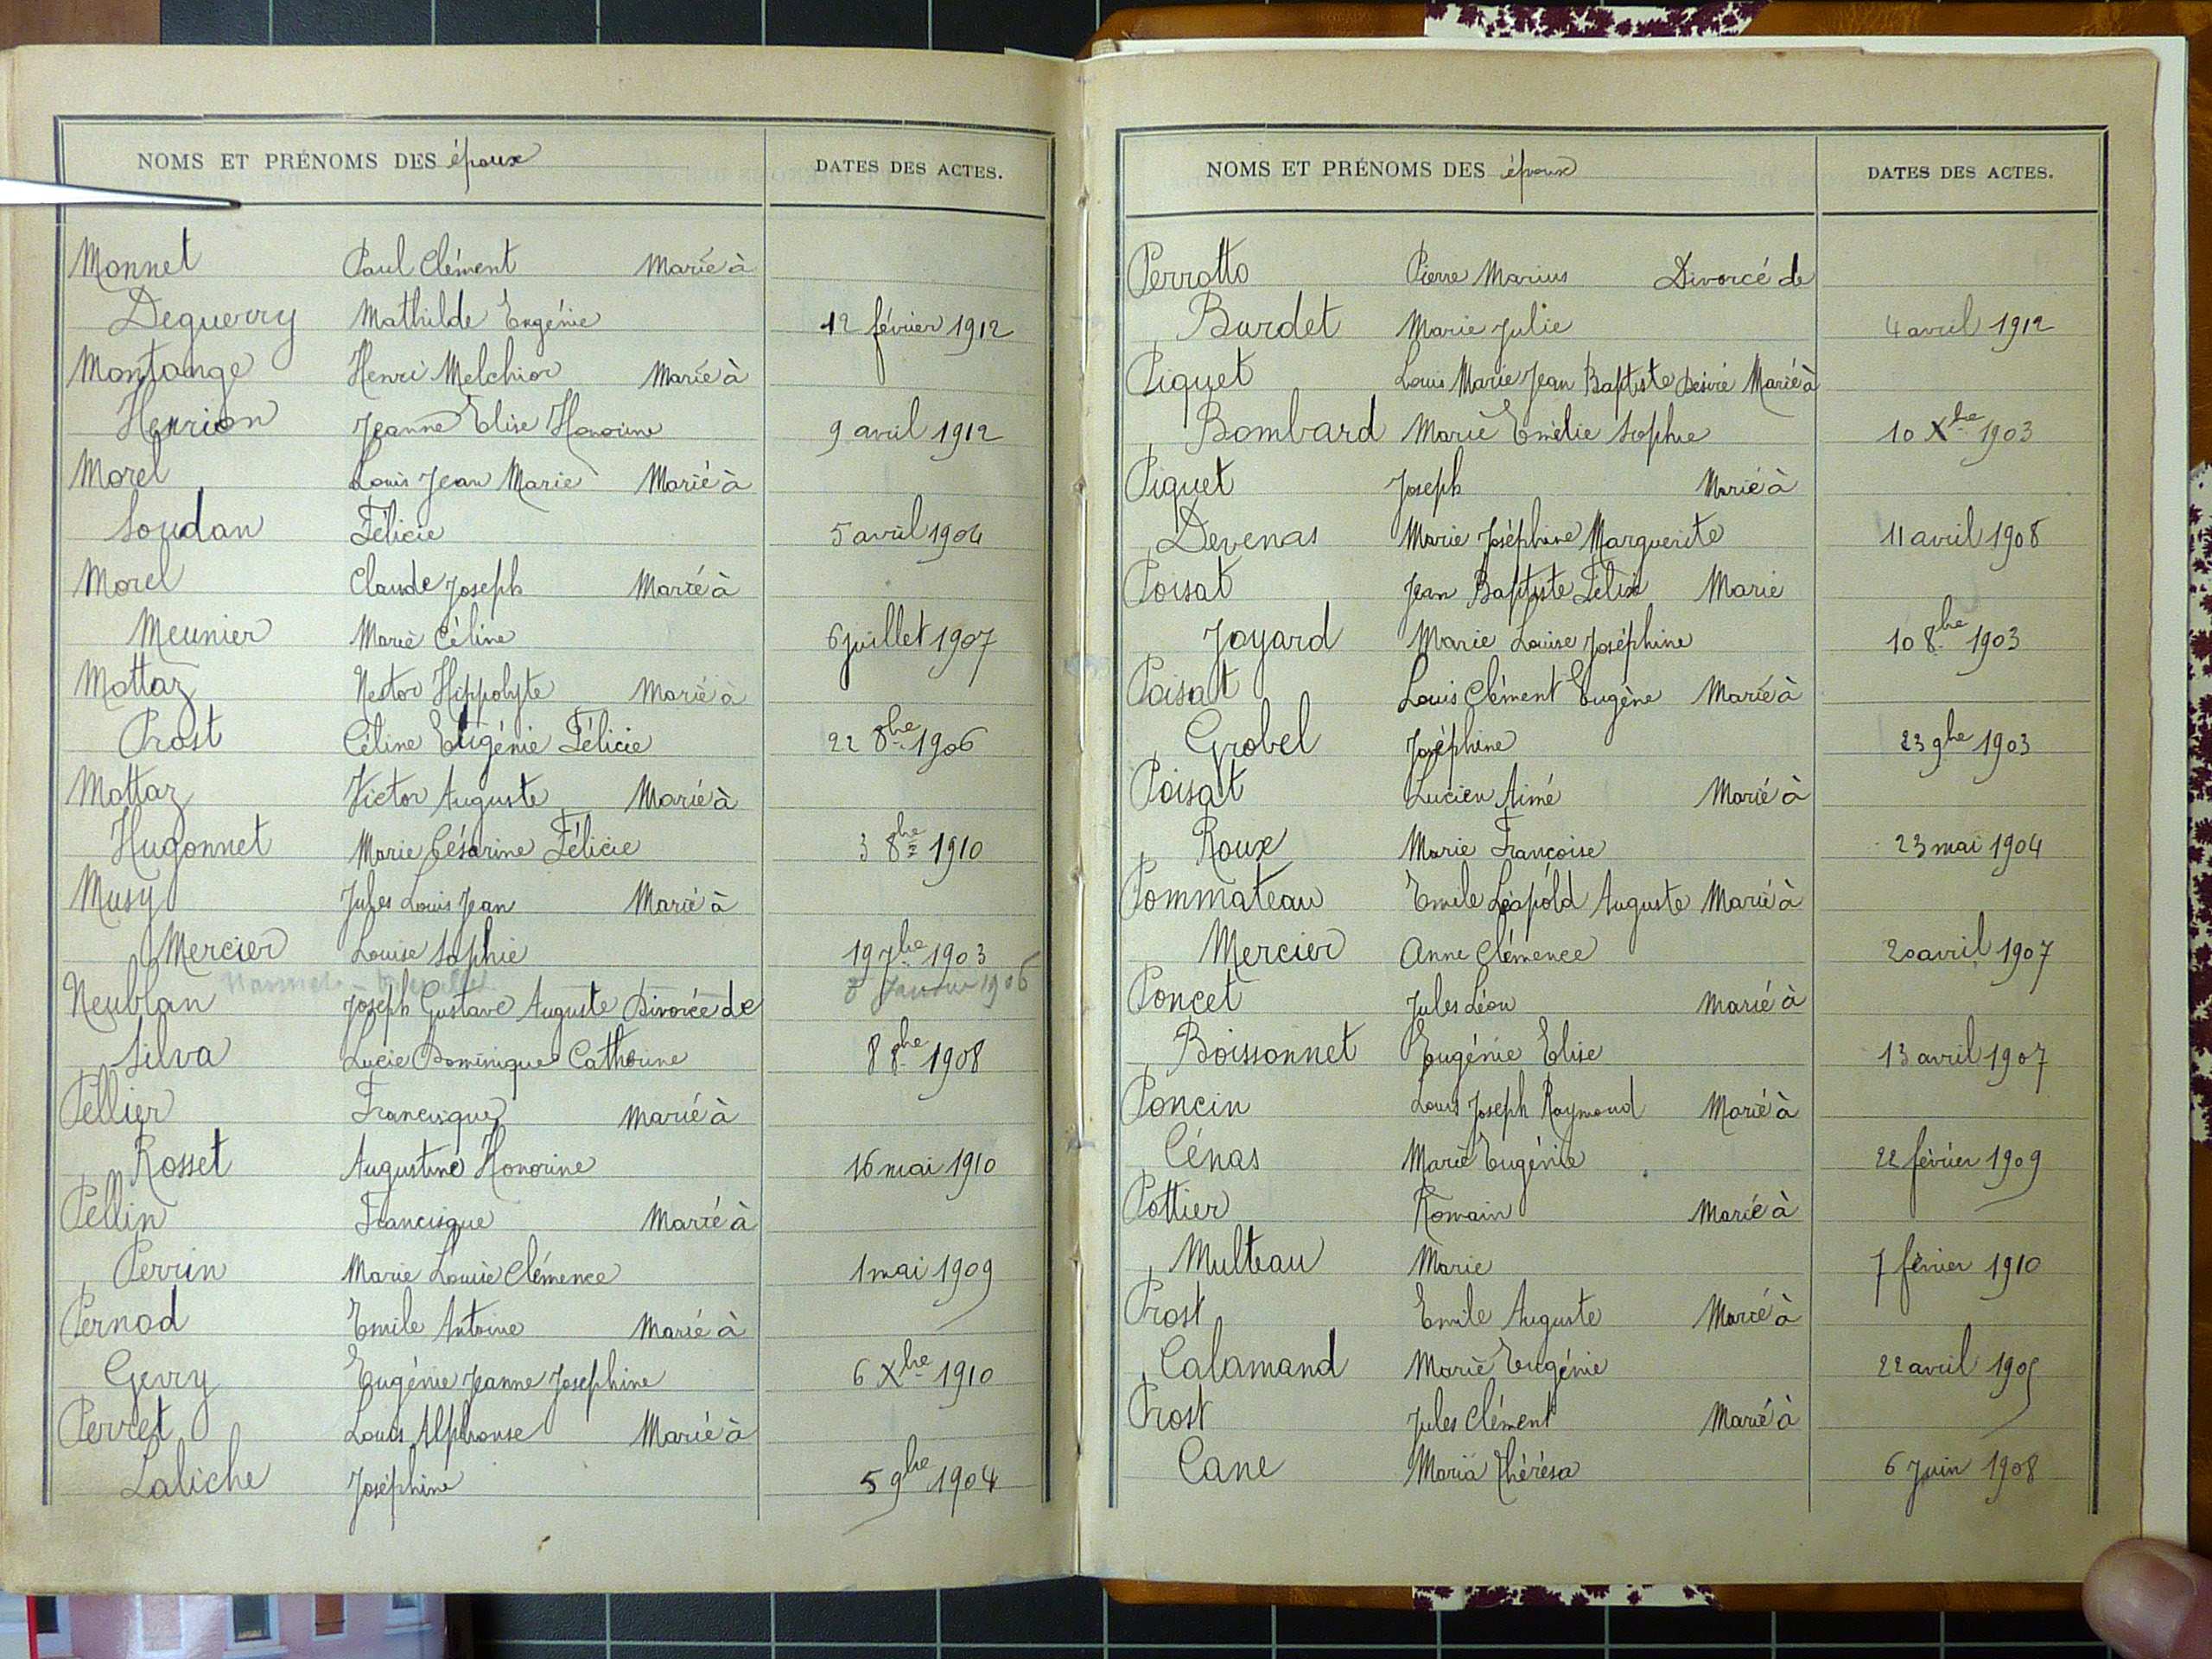 NOMS ET PRÉNOMS DES époux DATES DES ACTES.
Monnet Paul Clément Marié à
Deguerry Mathilde Eugénie 12 février 1912
Montange Henri Melchior Marié à
Henrion Jeanne Elise Honorine 9 avril 1912
Morel Louis Jean Marie Marié à
Soudan Félicie 5 avril 1904
Morel Claude Joseph Marié à
Meunier Marie Céline 6 juillet 1907
Mottaz Nestor Hippolyte Marié à
Prost Céline Eugénie Félicie 22 8bre 1906
Mottaz Victor Auguste Marié à
Hugonnet Marie Césarine Félicie 3 8bre 1910
Musy Jules Louis Jean Marié à
Mercier Louise Sophie 19 7bre 1903
8 Janvier 1906
Neublan Joseph Gustave Auguste Divorcé de
Silva Lucie Dominique Catherine 8 8bre 1908
Pellier Francisque Marié à
Rosset Augustine Honorine 16 mai 1910
Pellin Francisque Marié à
Perrin Marie Louise Clémence 1 mai 1909
Pernod Emile Antoine Marié à
Gevry Eugénie Jeanne Josephine 6 Xbre 1910
Perret Louis Alphonse Marié à
Laliche Joséphine 5 9bre 1904
NOMS ET PRÉNOMS DES époux DATES DES ACTES.
Perrotto Pierre Marius Divorcé de
Burdet Marie Julie 4 avril 1912
Piquet Louis Marie Jean Baptiste Désiré Marié à
Bombard Marie Emélie Sophie 10 Xbre 1903
Piquet Joseph Marié à
Devenas Marie Joséphine Marguerite 11 avril 1908
Poisat Jean Baptiste Félix Marié
Joyard Marie Louise Joséphine 10 8bre 1903
Poisat Louis Clément Eugène Marié à
Grobel Joséphine 23 9bre 1903
Poisat Lucien Aimé Marié à
Roux Marie Françoise 23 mai 1904
Pommateau Emile Léopold Auguste Marié à
Mercier Anne Clémence 20 avril 1907
Poncet Jules Léon Marié à
Boissonnet Eugénie Elise 13 avril 1907
Poncin Louis Joseph Raymond Marié à
Cénas Marie Eugénie 22 février 1909
Pottier Romain Marié à
Multeau Marie 7 février 1910
Prost Emile Auguste Marié à
Calamand Marie Eugénie 22 avril 1905
Prost Jules Clément Marié à
Cane Maria Thérésa 6 Juin 1908